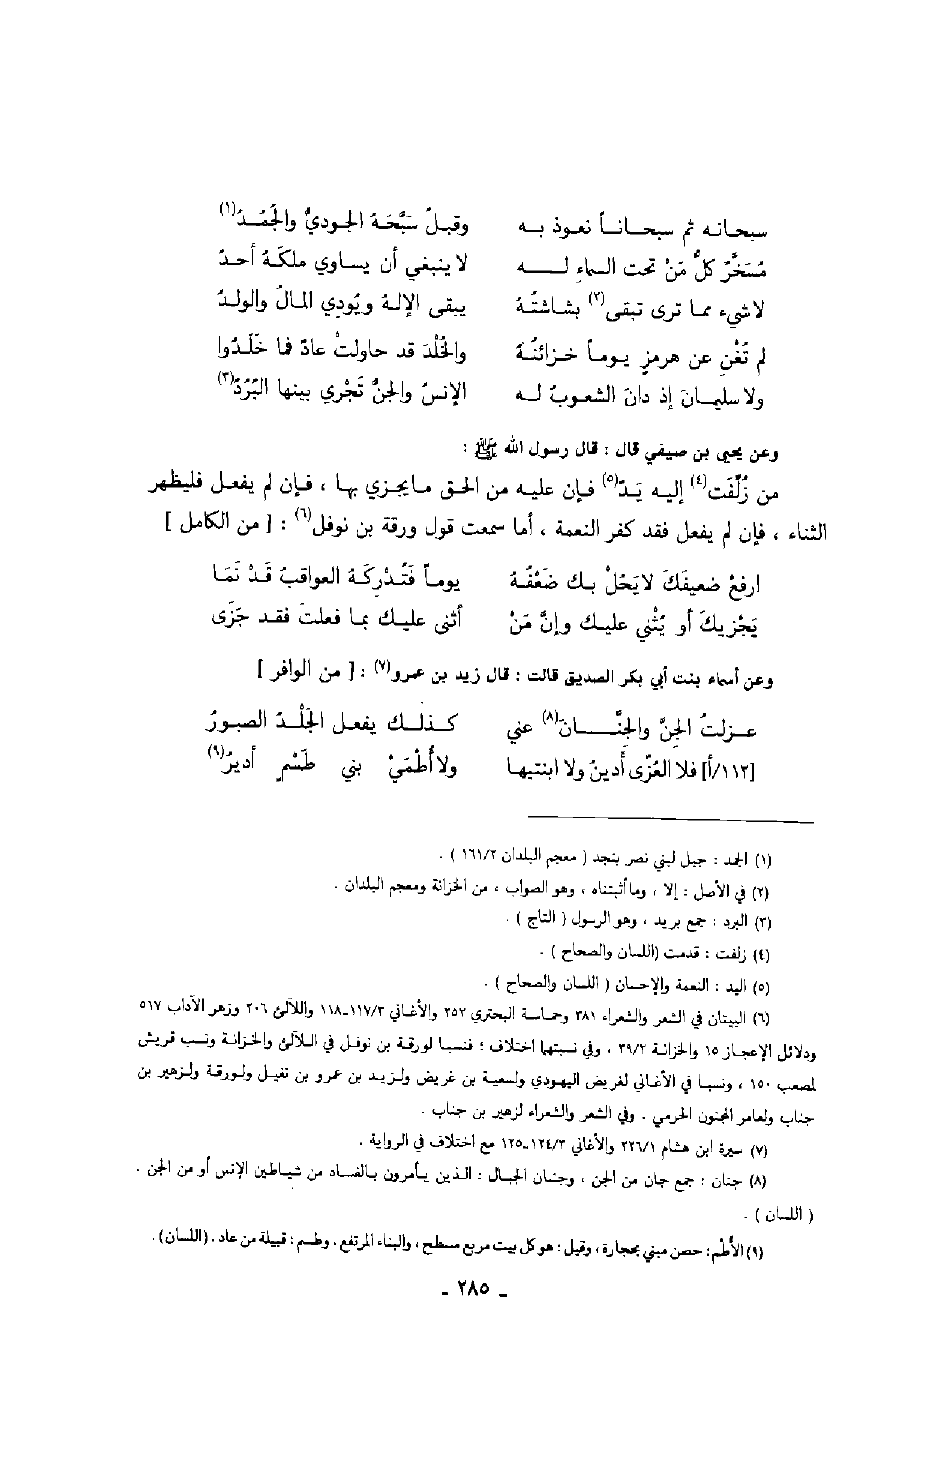 سبحانه ثم سبحاناً نعوذ به وقبلُ سَبَّحَهُ الجوديُّ والجُمُدُ(١)
مُسَخَّرٌ كلُّ مَنْ تحت السماءِ لـــه لا ينبغي أن يساوي ملكَهُ أحدُ
لا شيء مما ترى تبقى(٢) بشاشتُهُ يبقى الإلهُ ويُودِي المالُ والولدُ
لم تُغْنِ عن هرمزٍ يوماً خزائنُهُ والخُلْدَ قد حاولتْ عادٌ فما خَلَدُوا
ولا سليمانَ إذ دانَ الشعوبُ له الإنسُ والجنُّ تَجْرِي بينها البُرُدُ(٣)
وعن يحيى بن صيفي قال : قال رسول الله ﷺ :
من زُلِّفَت(٤) إليه يَدٌ(٥) فإن عليه من الحق مايجزي بها ، فإن لم يفعل فليظهر
الثناء ، فإن لم يفعل فقد كفر النعمة ، أما سمعت قول ورقة بن نوفل(٦) : [ من الكامل ]
ارفعْ ضعيفَكَ لايَحُلْ بك ضَعْفُهُ يوماً فَتُدْرِكَهُ العواقبُ قَدْ نَمَا
يَجْزيكَ أو يُثْني عليك وإنَّ مَنْ أثنى عليك بما فعلتَ فقد جَزَى
وعن أسماء بنت أبي بكر الصديق قالت : قال زيد بن عمرو(٧) : [ من الوافر ]
عـزلتُ الجنَّ والجِنَّـــانَ(٨) عني كـذلـك يفعل الجَلْـدُ الصبورُ
[١١٢/أ] فلا العُزّى أدينُ ولا ابنتيها ولا أُطْمَيْ بني طَسْمٍ أديرُ(٩)
(١) الجمد : جبل لبني نصر بنجد ( معجم البلدان ١٦١/٢ ) .
(٢) في الأصل : إلا ، وماأثبتناه ، وهو الصواب ، من الخزانة ومعجم البلدان .
(٣) البرد : جمع بريد ، وهو الرسول ( التاج ) .
(٤) زلفت : قدمت (اللسان والصحاح ) .
(٥) اليد : النعمة والإحسان ( اللسان والصحاح ) .
(٦) البيتان في الشعر والشعراء ٣٨١ وحماسة البحتري ٢٥٢ والأغاني ١١٧/٣ـ١١٨ واللآلئ ٢٠٦ وزهر الآداب ٥١٧
ودلائل الإعجاز ١٥ والخزانة ٣٩/٢ ، وفي نسبتها اختلاف ؛ فنسبا لورقة بن نوفل في اللآلئ والخزانة ونسب قريش
لمصعب ١٥٠ ، ونسبا في الأغاني لغريض اليهودي ولسعية بن غريض ولزيد بن عمرو بن نفيل ولورقة ولزهير بن
جناب ولعامر المجنون الجرمي . وفي الشعر والشعراء لزهير بن جناب .
(٧) سيرة ابن هشام ٢٢٦/١ والأغاني ١٢٤/٣ـ١٢٥ مع اختلاف في الرواية .
(٨) جنان : جمع جان من الجن ، وجنان الجبال : الذين يأمرون بالفساد من شياطين الإنس أو من الجن .
( اللسان ) .
(٩) الأُطُم: حصن مبني بحجارة، وقيل: هو كل بيت مربع مسطح، والبناء المرتفع. وطسم: قبيلة من عاد. (اللسان).
- ٢٨٥ -